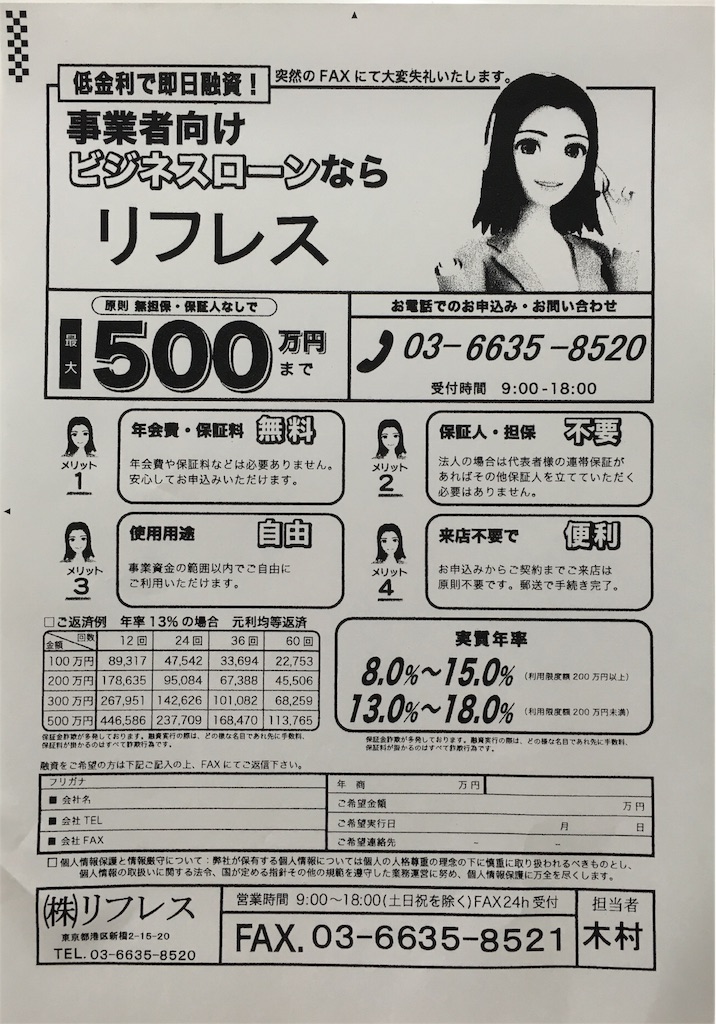 低金利で即日融資！
突然のFAXにて大変失礼いたします。
事業者向け
ビジネスローンなら
リフレス
原則 無担保・保証人なしで
最大
500万円まで
お電話でのお申込み・お問い合わせ
03-6635-8520
受付時間 9:00-18:00
メリット1
年会費・保証料 無料
年会費や保証料などは必要ありません。
安心してお申込みいただけます。
メリット2
保証人・担保 不要
法人の場合は代表者様の連帯保証が
あればその他保証人を立てていただく
必要はありません。
メリット3
使用用途 自由
事業資金の範囲以内でご自由に
ご利用いただけます。
メリット4
来店不要で 便利
お申込みからご契約までご来店は
原則不要です。郵送で手続き完了。
□ご返済例 年率13%の場合 元利均等返済
金額 回数 12回 24回 36回 60回
100万円 89,317 47,542 33,694 22,753
200万円 178,635 95,084 67,388 45,506
300万円 267,951 142,626 101,082 68,259
500万円 446,586 237,709 168,470 113,765
保証金詐欺が多発しております。融資実行の際は、どの様な名目であれ先に手数料、
保証料が掛かるのはすべて詐欺行為です。
実質年率
8.0%～15.0%（利用限度額200万円以上）
13.0%～18.0%（利用限度額200万円未満）
保証金詐欺が多発しております。融資実行の際は、どの様な名目であれ先に手数料、
保証料が掛かるのはすべて詐欺行為です。
融資をご希望の方は下記ご記入の上、FAXにてご返信下さい。
フリガナ
■ 会社名
■ 会社TEL
■ 会社FAX
年 商 万円
ご希望金額 万円
ご希望実行日 月 日
ご希望連絡先 － －
□個人情報保護と情報厳守について：弊社が保有する個人情報については個人の人格尊重の理念の下に慎重に取り扱われるべきものとし、
個人情報の取扱いに関する法令、国が定める指針その他の規範を遵守した業務運営に努め、個人情報保護に万全を尽くします。
㈱リフレス
東京都港区新橋2-15-20
TEL. 03-6635-8520
営業時間 9:00～18:00(土日祝を除く)FAX24h受付
FAX. 03-6635-8521
担当者
木村